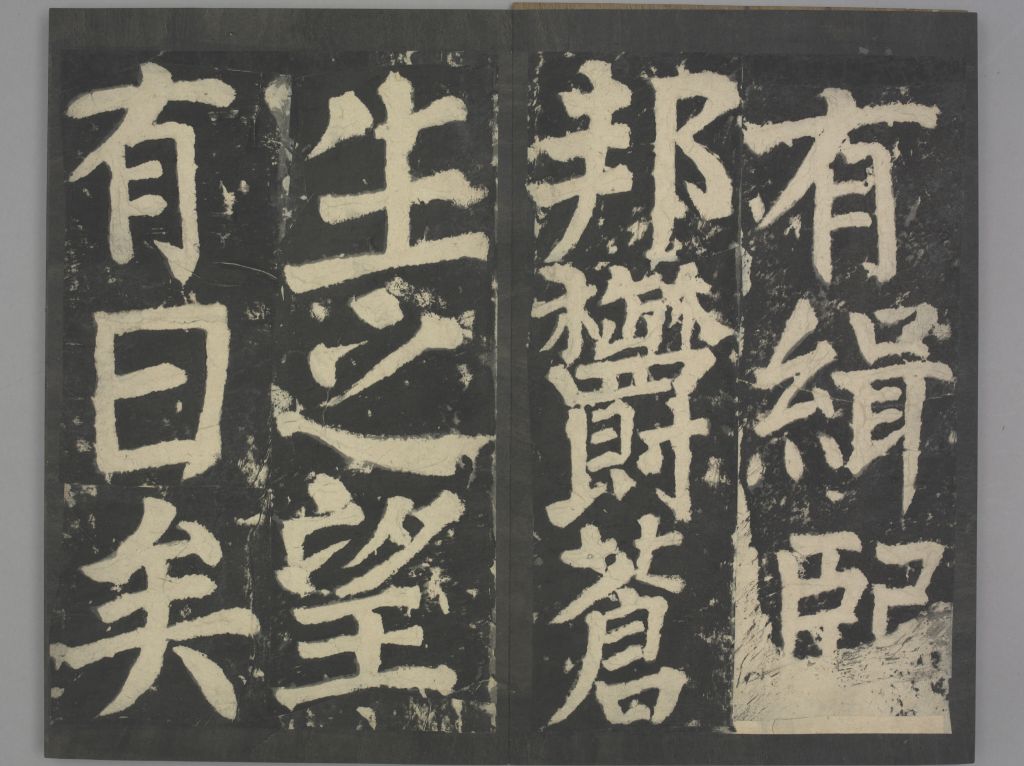 有緝熙
邦鬱蒼
生之望
有日矣